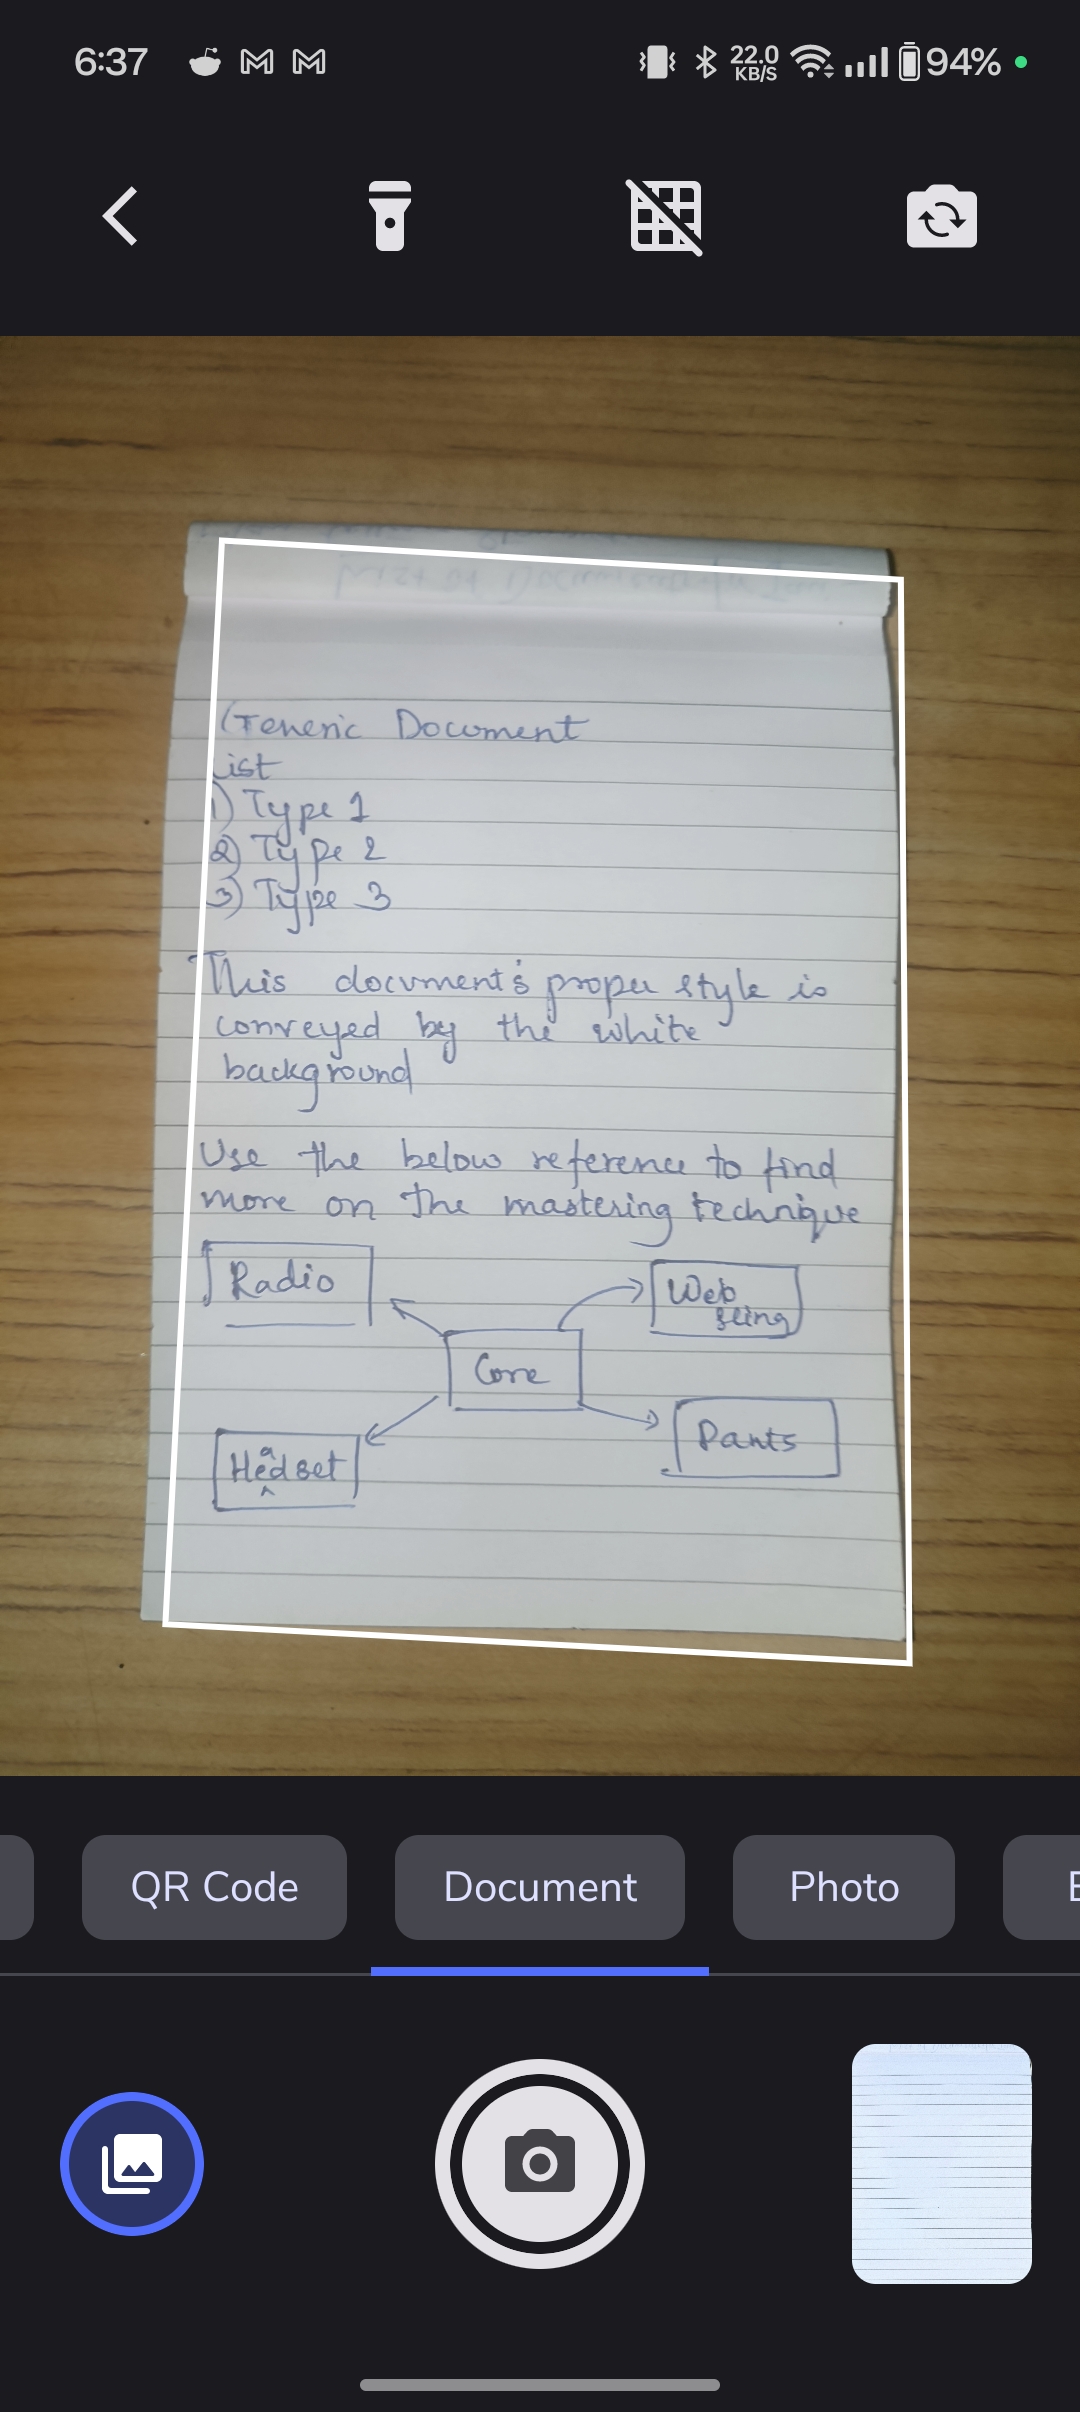 6:37
22.0
KB/S
94%
Generic Document
List
1) Type 1
2) Type 2
3) Type 3
This document's proper style is
conveyed by the white
background
Use the below reference to find
more on the mastering technique
Radio
Web
sling
Core
Pants
Hedset
a
^
QR Code
Document
Photo